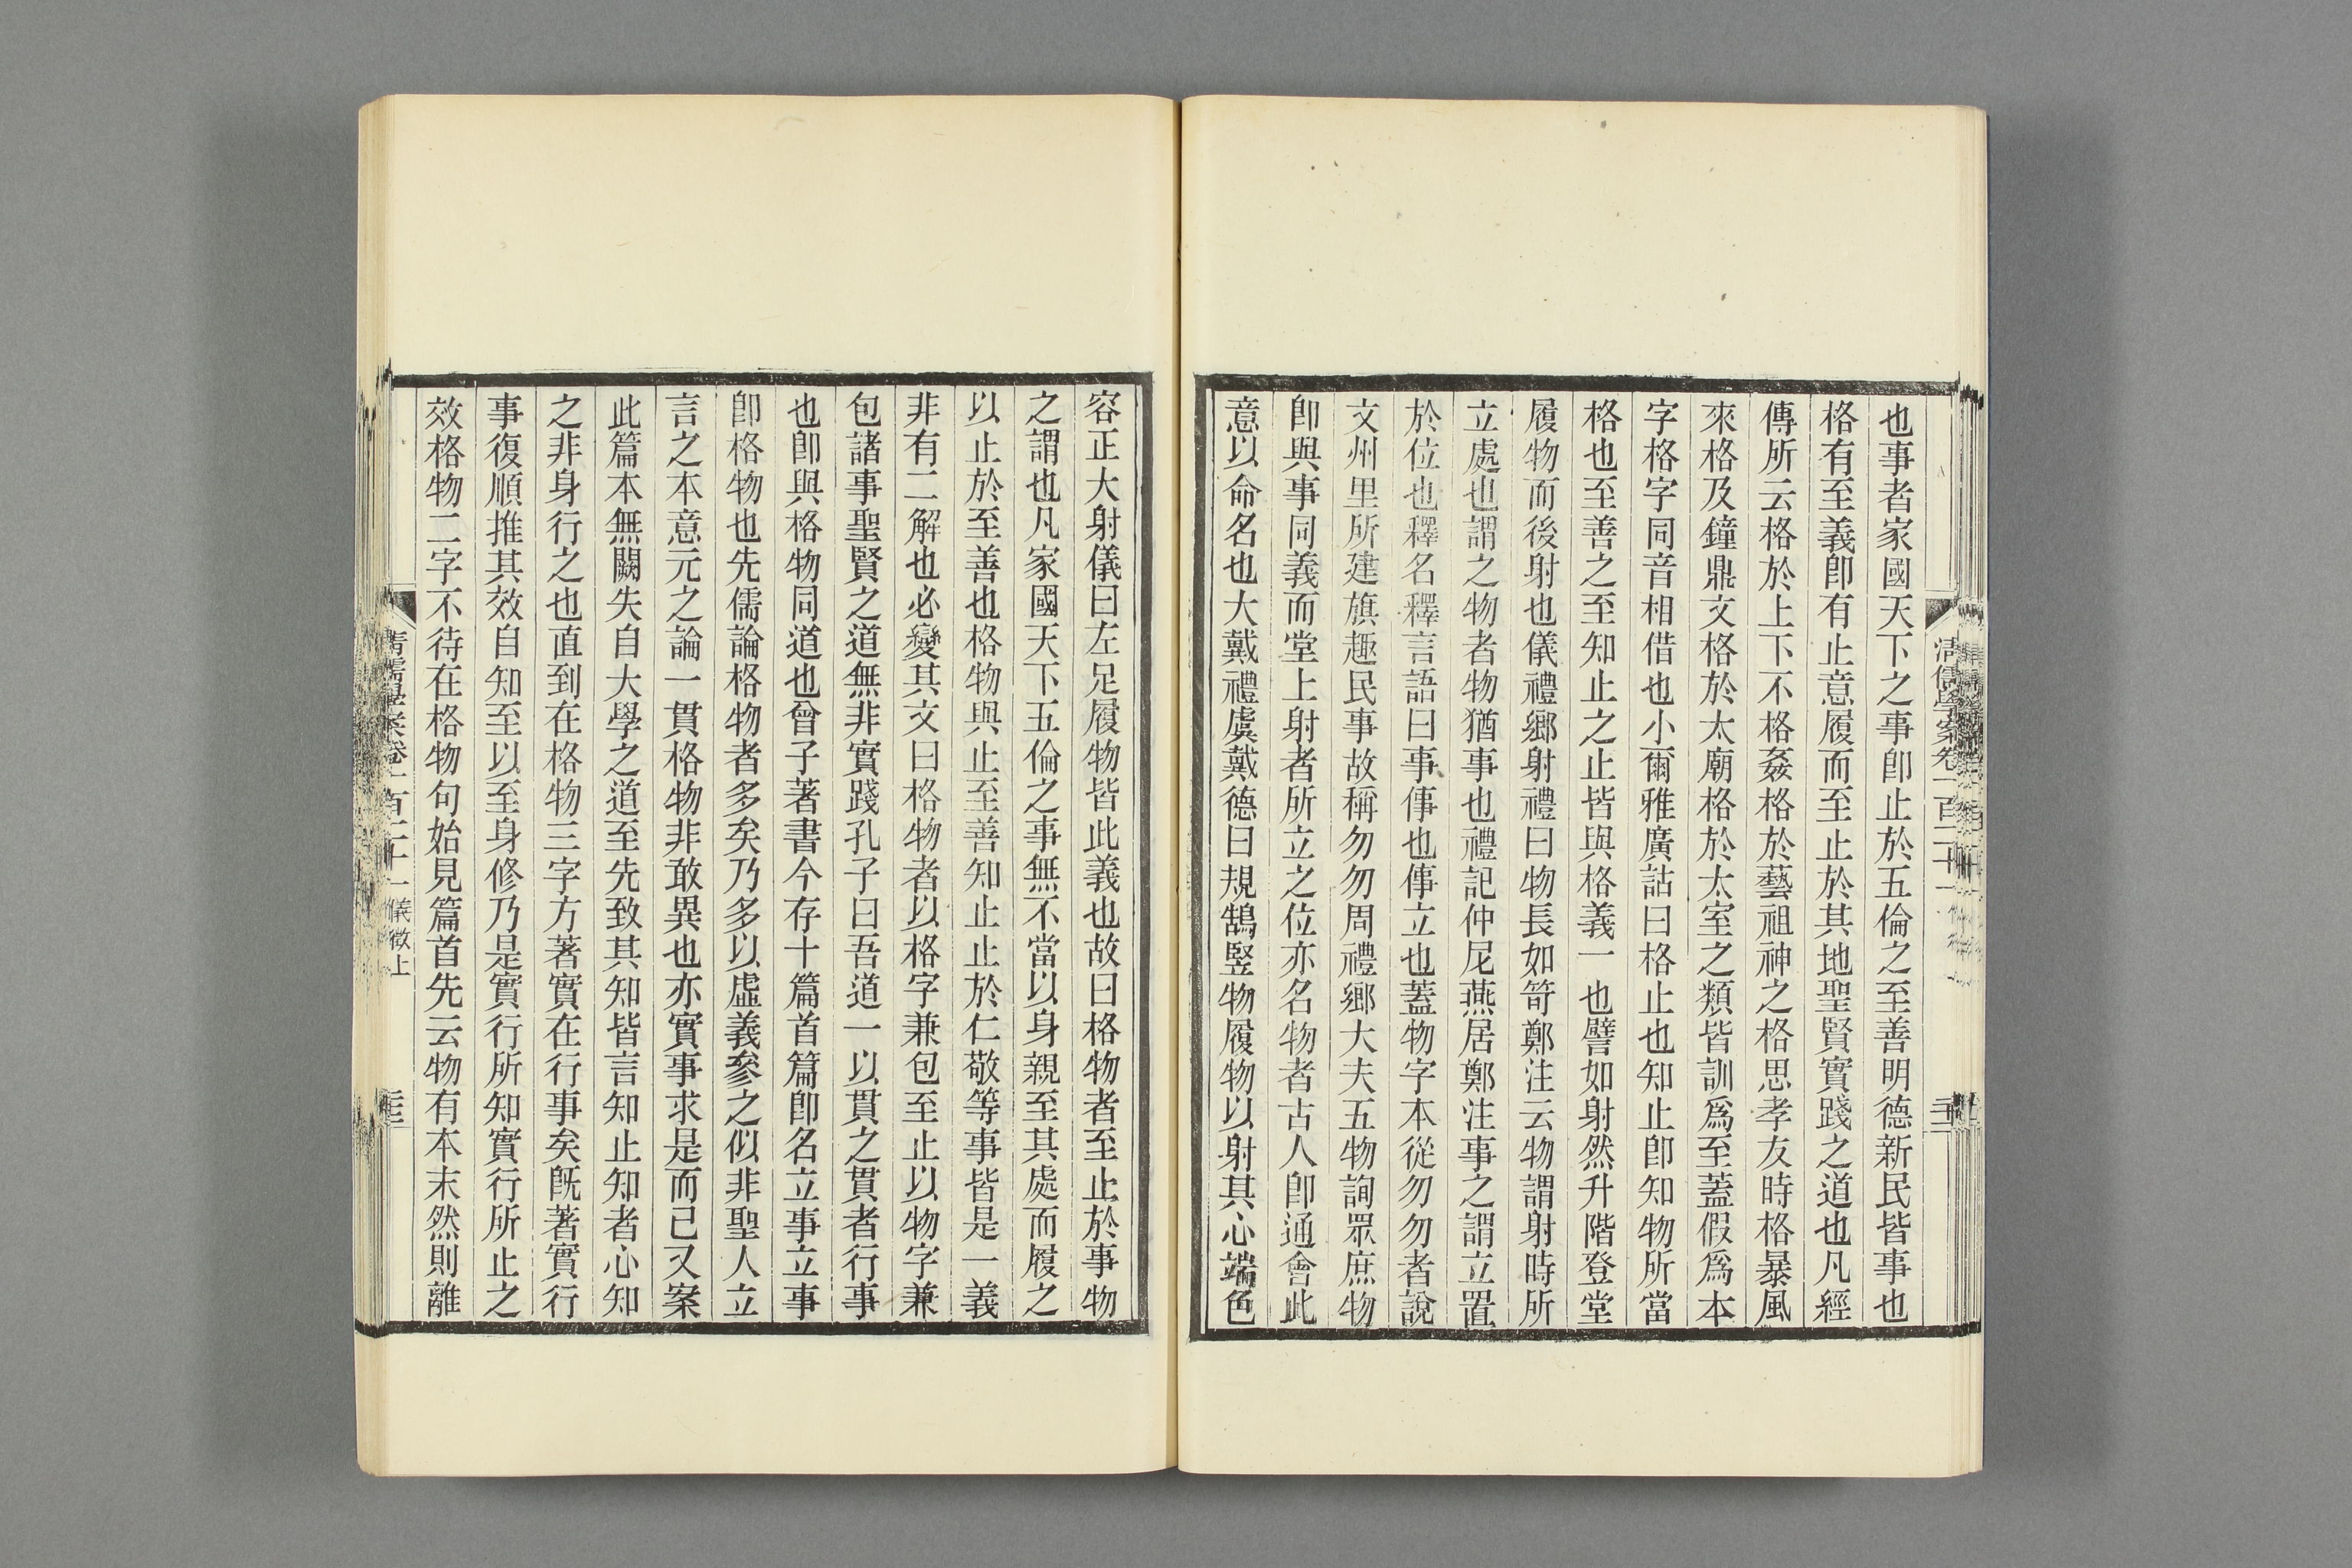 也事者家國天下之事卽止於五倫之至善明德新民皆事也
格有至義卽有止意履而至止於其地聖賢實踐之道也凡經
傳所云格於上下不格姦格於藝祖神之格思孝友時格暴風
來格及鐘鼎文格於太廟格於太室之類皆訓爲至蓋假爲本
字格字同音相借也小爾雅廣詁曰格止也知止卽知物所當
格也至善之至知止之止皆與格義一也譬如射然升階登堂
履物而後射也儀禮鄉射禮曰物長如笴鄭注云物謂射時所
立處也謂之物者物猶事也禮記仲尼燕居鄭注事之謂立置
於位也釋名釋言語曰事倳也倳立也蓋物字本從勿勿者說
文州里所建旗趣民事故稱勿勿周禮鄉大夫五物詢眾庶物
卽與事同義而堂上射者所立之位亦名物者古人卽通會此
意以命名也大戴禮虞戴德曰規鵠豎物履物以射其心端色
清儒學案卷一百二十一
容正大射儀曰左足履物皆此義也故曰格物者至止於事物
之謂也凡家國天下五倫之事無不當以身親至其處而履之
以止於至善也格物與止至善知止止於仁敬等事皆是一義
非有二解也必變其文曰格物者以格字兼包至止以物字兼
包諸事聖賢之道無非實踐孔子曰吾道一以貫之貫者行事
也卽與格物同道也曾子著書今存十篇首篇卽名立事立事
卽格物也先儒論格物者多矣乃多以虛義參之似非聖人立
言之本意元之論一貫格物非敢異也亦實事求是而已又案
此篇本無闕失自大學之道至先致其知皆言知止知者心知
之非身行之也直到在格物三字方著實在行事矣旣著實行
事復順推其效自知至以至身修乃是實行所知實行所止之
效格物二字不待在格物句始見篇首先云物有本末然則離
清儒學案卷一百二十一儀徵上